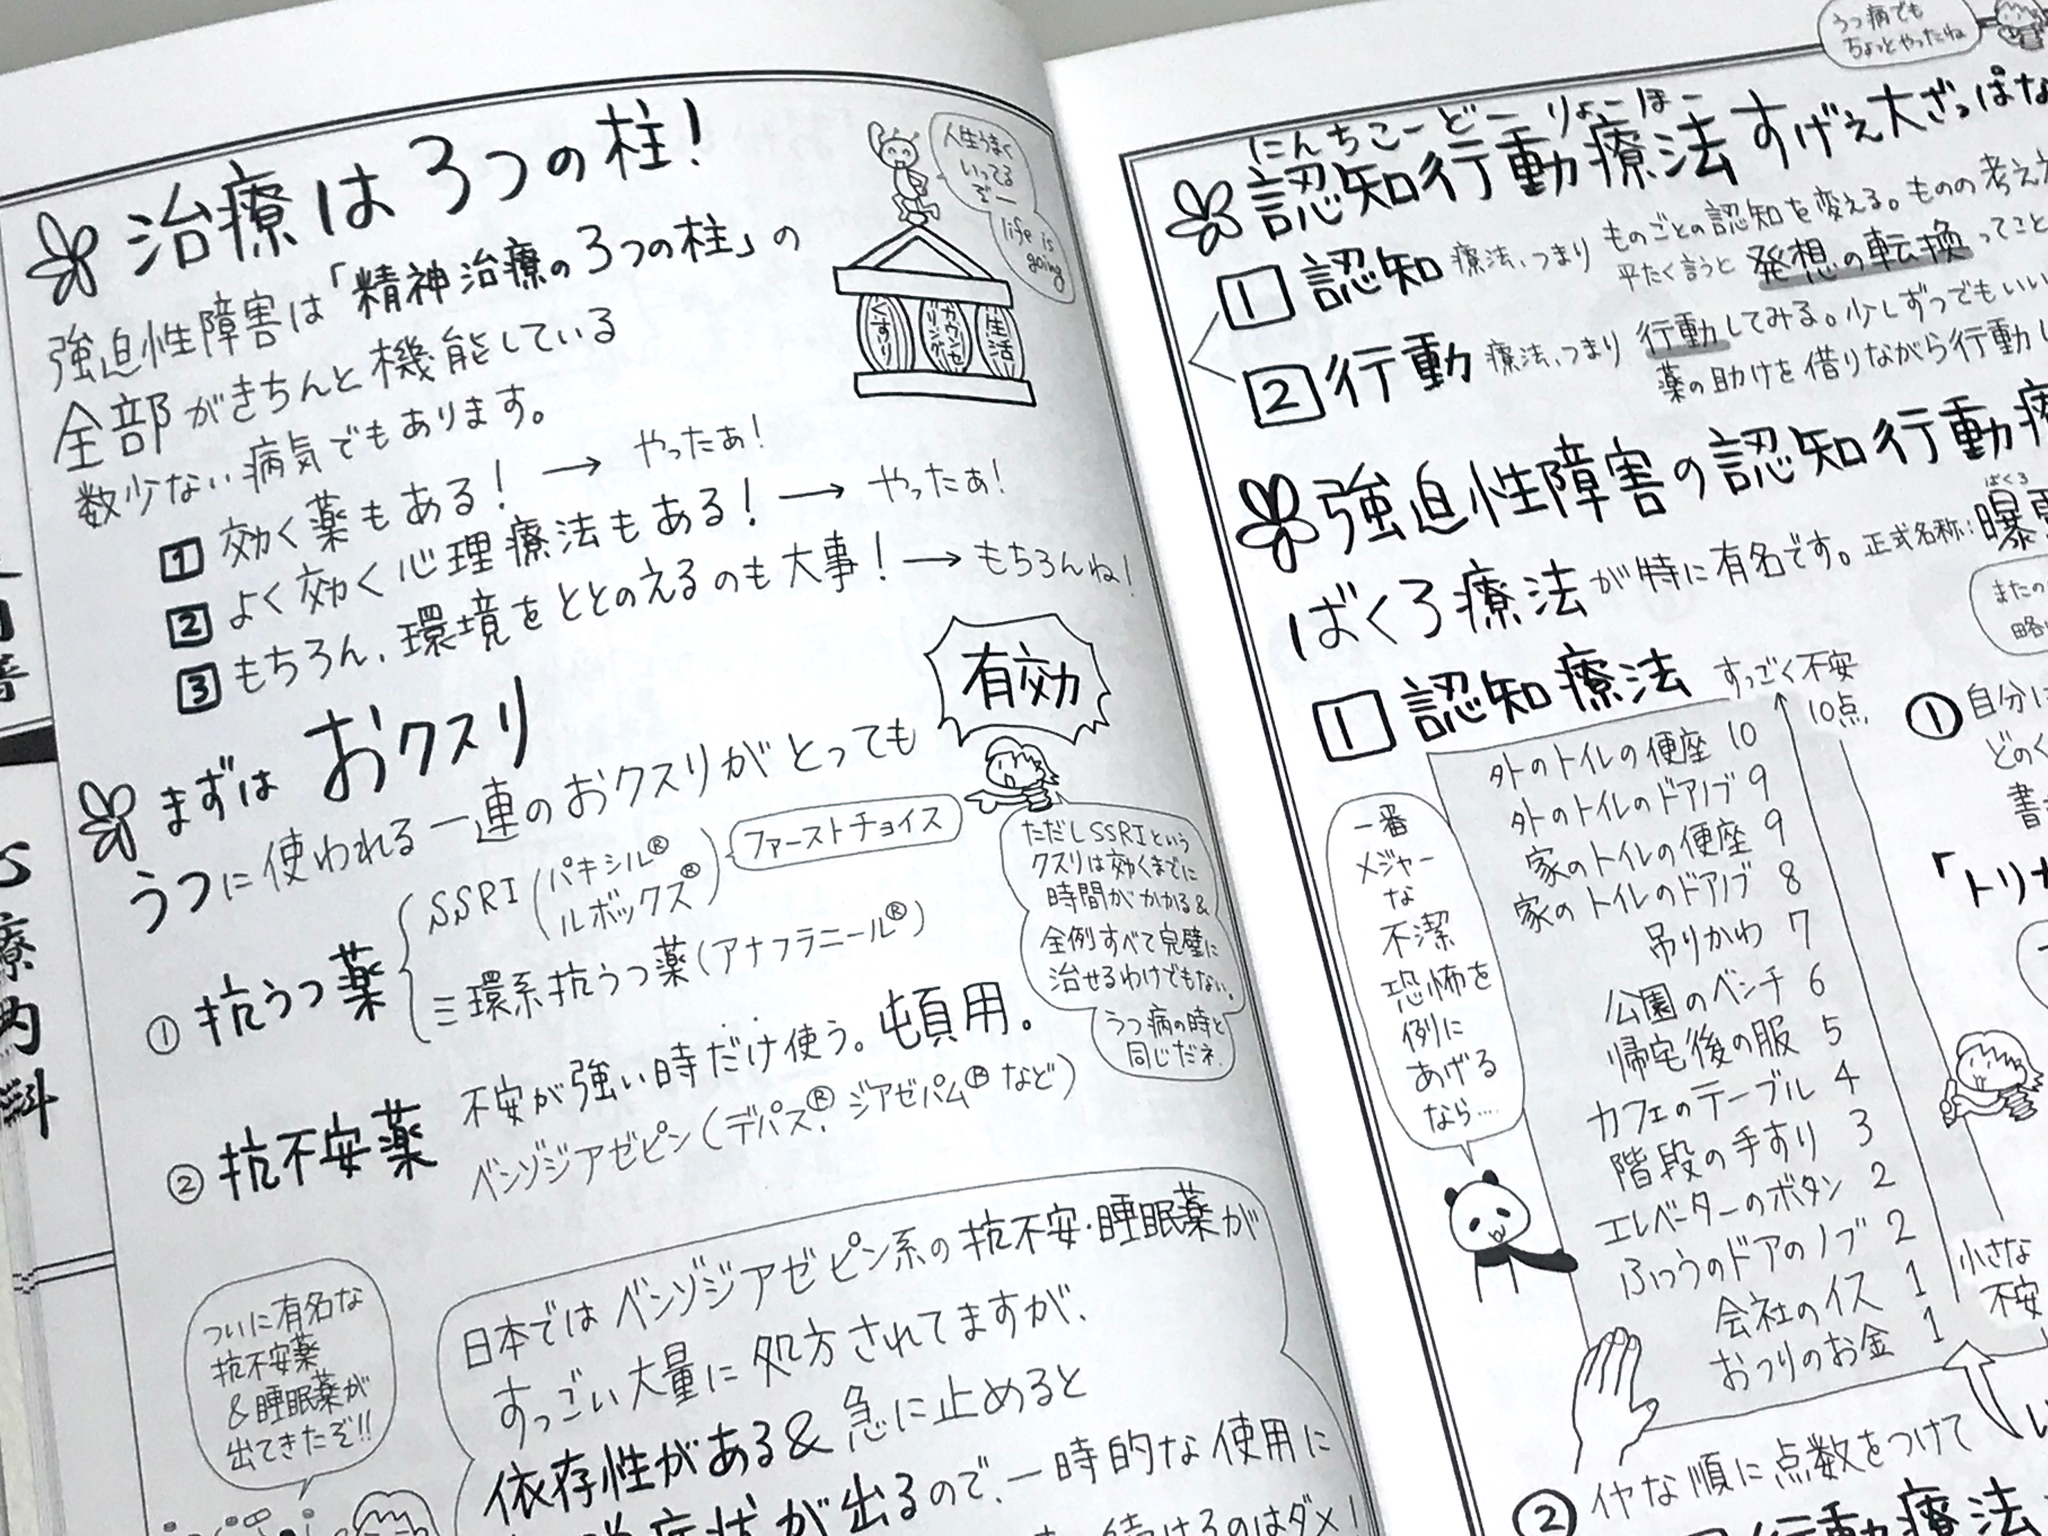 治療は3つの柱!
強迫性障害は「精神治療の3つの柱」の
全部がきちんと機能している
数少ない病気でもあります。
1 効く薬もある! → やったぁ!
2 よく効く心理療法もある! → やったぁ!
3 もちろん、環境をととのえるのも大事! → もちろんね!
人生うまく
いってる
ぞー
life is
going
くすり
カウンセリング
生活
まずは おクスリ
うつに使われる一連のおクスリがとっても
有効
① 抗うつ薬
SSRI (パキシル® ルボックス®)
ファーストチョイス
三環系抗うつ薬(アナフラニール®)
② 抗不安薬
不安が強い時だけ使う。頓用。
ベンゾジアゼピン(デパス®、ジアゼパム®など)
ただしSSRIという
クスリは効くまでに
時間がかかる&
全例すべて完璧に
治せるわけでもない。
うつ病の時と
同じだネ.
ついに有名な
抗不安薬
&睡眠薬が
出てきたぞ!!
日本ではベンゾジアゼピン系の抗不安・睡眠薬が
すっごい大量に処方されてますが、
依存性がある&急に止めると
症状が出るので、一時的な使用に
けるのはダメ!
療内科
うつ病でも
ちょっとやったね
にんちこーどーりょーほー
認知行動療法 すげえ大ざっぱな
1 認知療法、つまり ものごとの認知を変える。ものの考え方
平たく言うと 発想の転換ってこと
2 行動療法、つまり 行動してみる。少しずつでもいい
薬の助けを借りながら行動し
強迫性障害の認知行動療
ばくろ療法が特に有名です。正式名称:曝露
ばくろ
またの
略
1 認知療法
すっごく不安
10点
外のトイレの便座 10
外のトイレのドアノブ 9
家のトイレの便座 9
家のトイレのドアノブ 8
吊りかわ 7
公園のベンチ 6
帰宅後の服 5
カフェのテーブル 4
階段の手すり 3
エレベーターのボタン 2
ふつうのドアのノブ 2
会社のイス 1
おつりのお金 1
一番
メジャー
な
不潔
恐怖を
例に
あげる
なら....
① 自分に
どのく
書
「トリガ
小さな
不安
② イヤな順に点数をつけて
行動療法